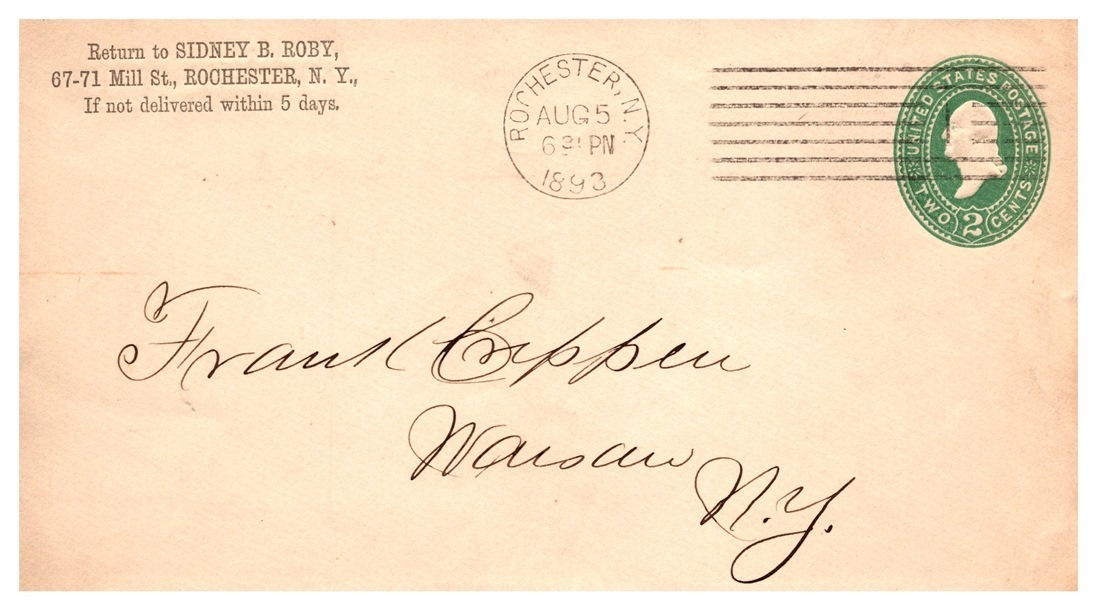 Return to SIDNEY B. ROBY,
67-71 Mill St., ROCHESTER, N. Y.,
If not delivered within 5 days.
ROCHESTER, N.Y.
AUG 5
PN
1893
UNITED STATES POSTAGE
TWO 2 CENTS
Frank
Warsaw
N.Y.